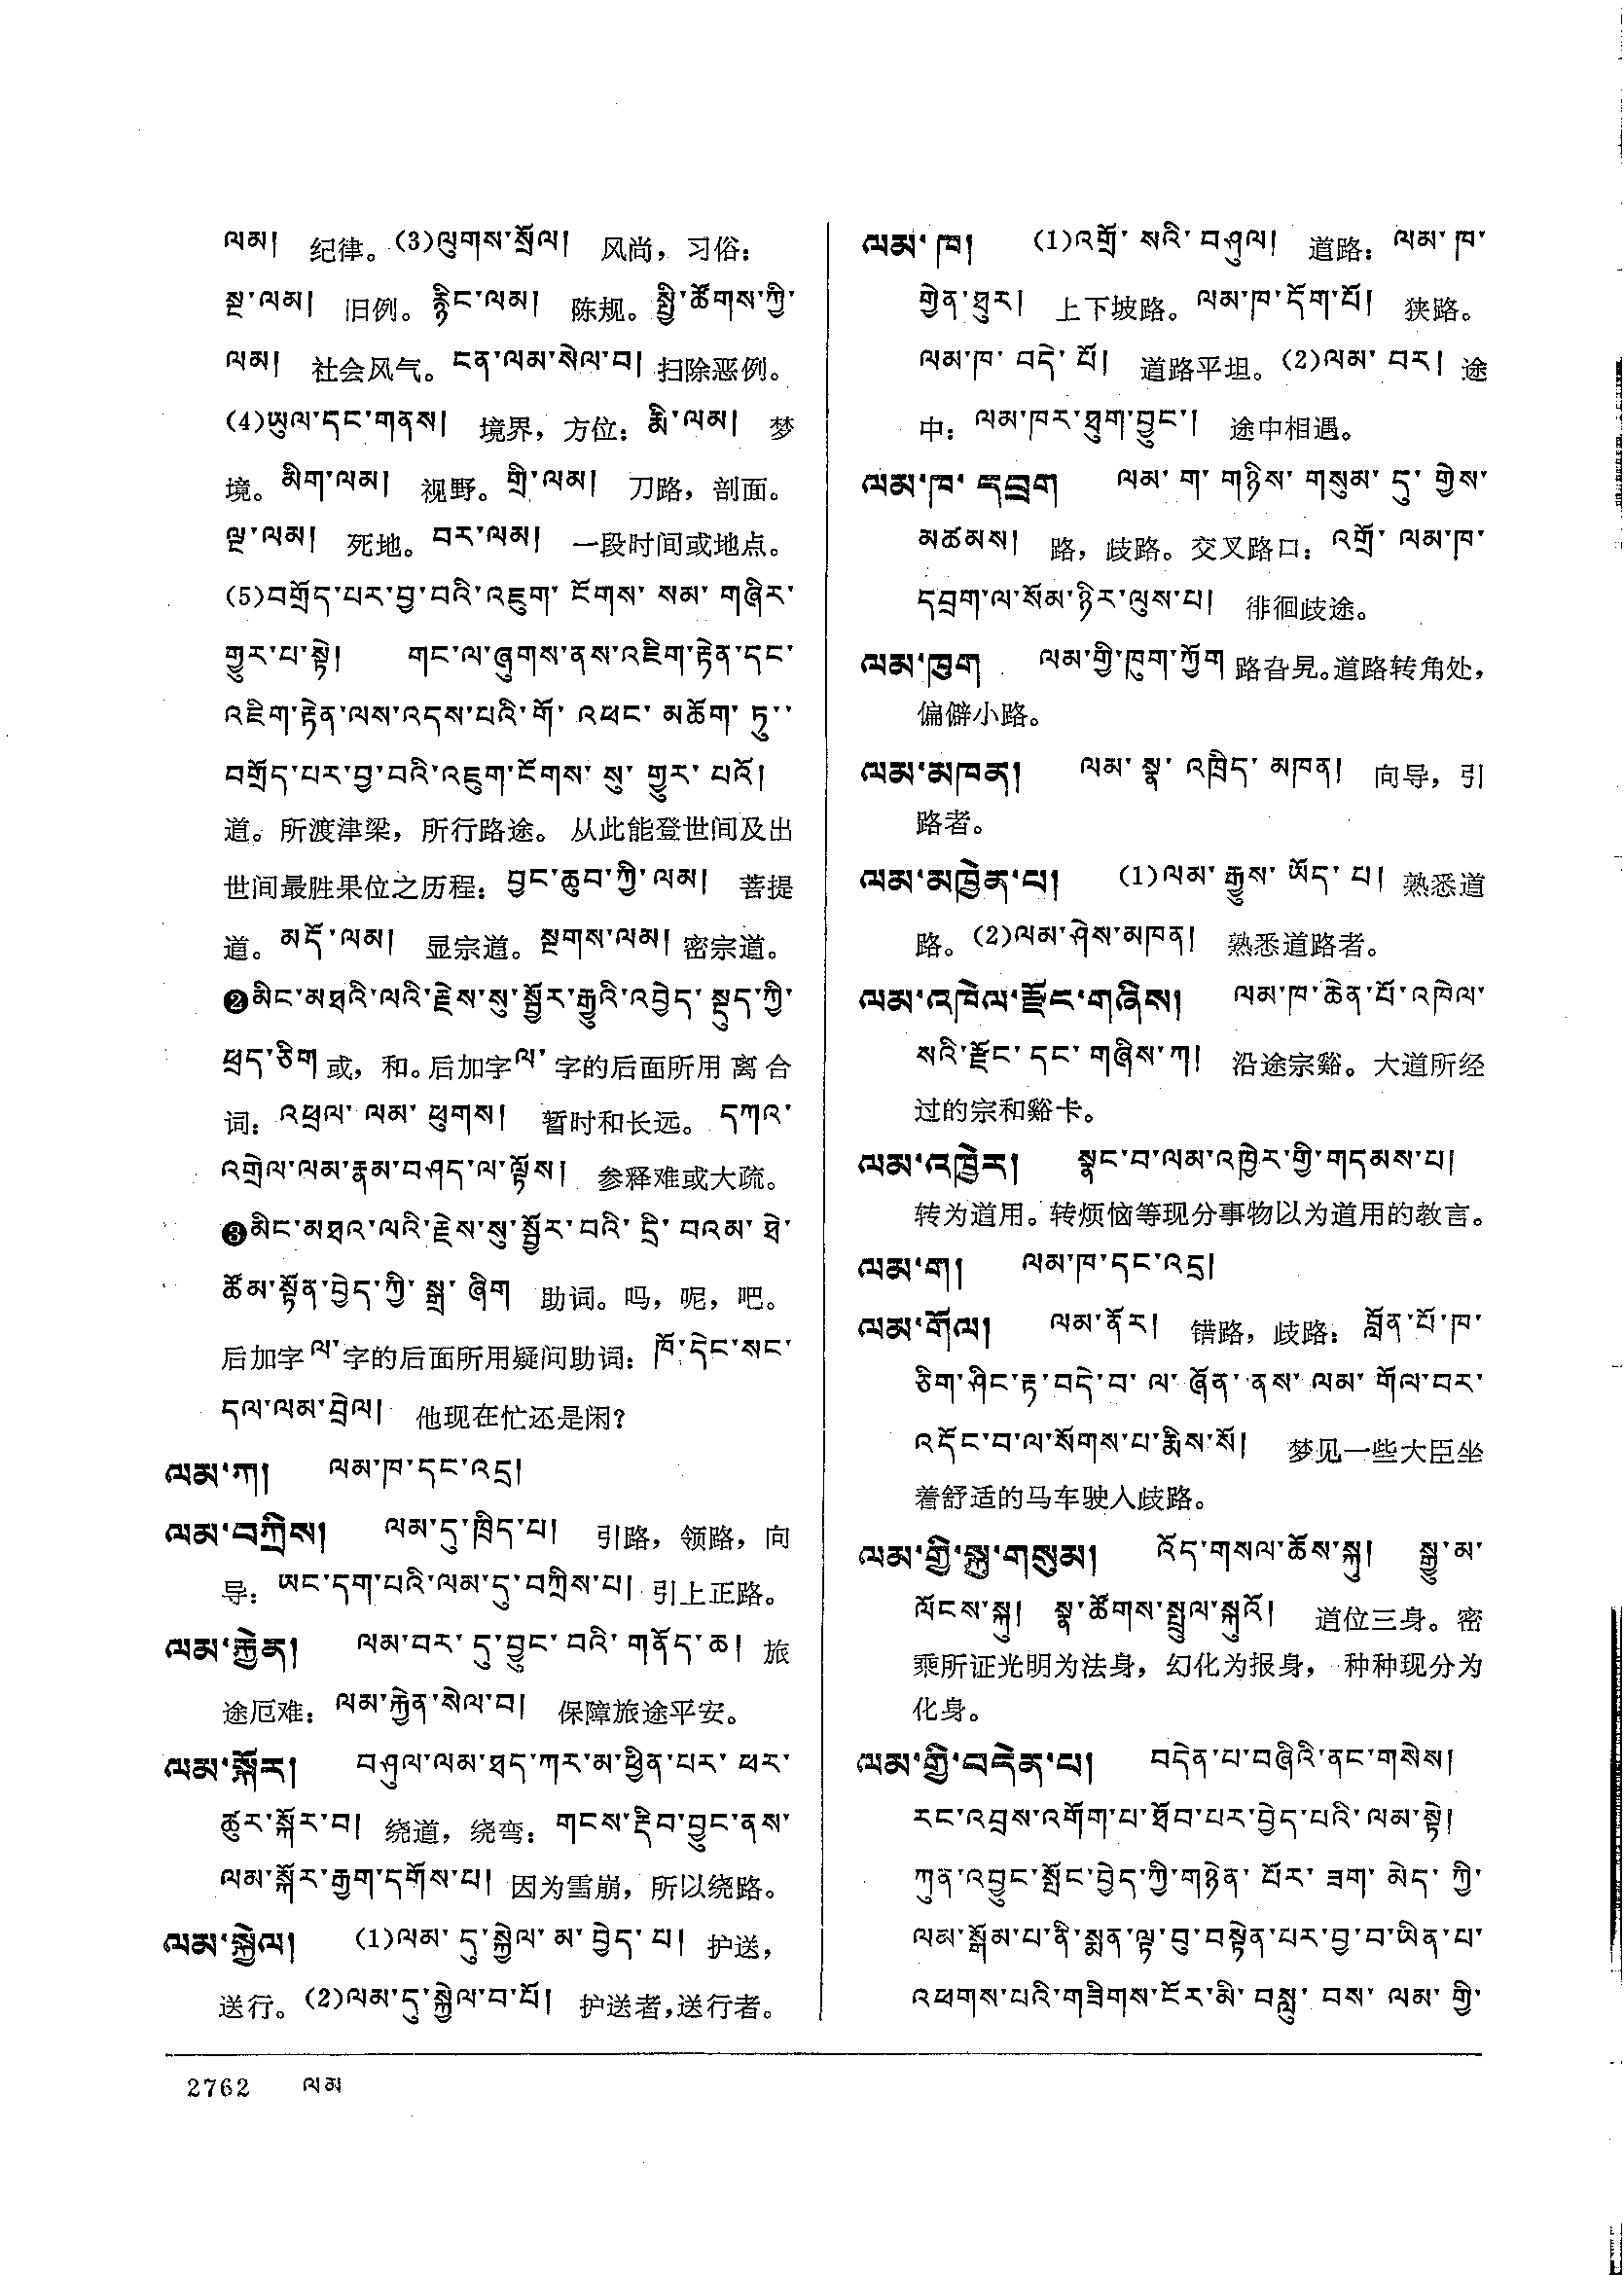 ལམ། 纪律。(3)ལུགས་སྲོལ། 风尚，习俗：
སྔ་ལམ། 旧例。རྙིང་ལམ། 陈规。སྤྱི་ཚོགས་ཀྱི་
ལམ། 社会风气。ངན་ལམ་སེལ་བ། 扫除恶例。
(4)ཡུལ་དང་གནས། 境界，方位：རྨི་ལམ། 梦
境。མིག་ལམ། 视野。གྲི་ལམ། 刀路，剖面。
ལྟ་ལམ། 死地。བར་ལམ། 一段时间或地点。
(5)བགྲོད་པར་བྱ་བའི་འཇུག་ངོགས་སམ་གཞིར་
གྱུར་པ་སྟེ། གང་ལ་ཞུགས་ནས་འཇིག་རྟེན་དང་
འཇིག་རྟེན་ལས་འདས་པའི་གོ་འཕང་མཆོག་ཏུ་
བགྲོད་པར་བྱ་བའི་འཇུག་ངོགས་སུ་གྱུར་པའོ།
道。所渡津梁，所行路途。从此能登世间及出
世间最胜果位之历程：བྱང་ཆུབ་ཀྱི་ལམ། 菩提
道。མདོ་ལམ། 显宗道。སྔགས་ལམ། 密宗道。
❷མིང་མཐའི་ལའི་རྗེས་སུ་སྦྱོར་རྒྱུའི་འབྱེད་སྡུད་ཀྱི་
ཕྲད་ཅིག 或，和。后加字ལ་字的后面所用离合
词：འཕྲལ་ལམ་ཕུགས། 暂时和长远。དཀའ་
འགྲེལ་ལམ་རྣམ་བཤད་ལ་ལྟོས། 参释难或大疏。
❸མིང་མཐའ་ལའི་རྗེས་སུ་སྦྱོར་བའི་དྲི་བའམ་ཐེ་
ཚོམ་སྟོན་བྱེད་ཀྱི་སྒྲ་ཞིག 助词。吗，呢，吧。
后加字ལ་字的后面所用疑问助词：ཁོ་དེང་སང་
དལ་ལམ་བྲེལ། 他现在忙还是闲？
ལམ་ཀ། ལམ་ཁ་དང་འདྲ།
ལམ་བཀྲིས། ལམ་དུ་ཁྲིད་པ། 引路，领路，向
导：ཡང་དག་པའི་ལམ་དུ་བཀྲིས་པ། 引上正路。
ལམ་རྐྱེན། ལམ་བར་དུ་བྱུང་བའི་གནོད་ཆ། 旅
途厄难：ལམ་རྐྱེན་སེལ་བ། 保障旅途平安。
ལམ་སྐོར། བཤུལ་ལམ་ཐད་ཀར་མ་ཕྱིན་པར་ཕར་
ཚུར་སྐོར་བ། 绕道，绕弯：གངས་རྡིབ་བྱུང་ནས་
ལམ་སྐོར་རྒྱག་དགོས་པ། 因为雪崩，所以绕路。
ལམ་སྐྱེལ། (1)ལམ་དུ་སྐྱེལ་མ་བྱེད་པ། 护送，
送行。(2)ལམ་དུ་སྐྱེལ་བ་པོ། 护送者，送行者。
ལམ་ཁ། (1)འགྲོ་སའི་བཤུལ། 道路：ལམ་ཁ་
གྱེན་ཐུར། 上下坡路。ལམ་ཁ་དོག་པོ། 狭路。
ལམ་ཁ་བདེ་པོ། 道路平坦。(2)ལམ་བར། 途
中：ལམ་ཁར་ཐུག་བྱུང་། 途中相遇。
ལམ་ཁ་དབྲག ལམ་ག་གཉིས་གསུམ་དུ་གྱེས་
མཚམས། 路，歧路。交叉路口：འགྲོ་ལམ་ཁ་
དབྲག་ལ་སོམ་ཉིར་ལུས་པ། 徘徊歧途。
ལམ་ཁུག ལམ་གྱི་ཁུག་ཀྱོག 路旮旯。道路转角处，
偏僻小路。
ལམ་མཁན། ལམ་སྣ་འཁྲིད་མཁན། 向导，引
路者。
ལམ་མཁྱེན་པ། (1)ལམ་རྒྱུས་ཡོད་པ། 熟悉道
路。(2)ལམ་ཤེས་མཁན། 熟悉道路者。
ལམ་འཁེལ་རྫོང་གཞིས། ལམ་ཁ་ཆེན་པོ་འཁེལ་
སའི་རྫོང་དང་གཞིས་ཀ། 沿途宗谿。大道所经
过的宗和谿卡。
ལམ་འཁྱེར། སྣང་བ་ལམ་འཁྱེར་གྱི་གདམས་པ།
转为道用。转烦恼等现分事物以为道用的教言。
ལམ་ག། ལམ་ཁ་དང་འདྲ།
ལམ་གོལ། ལམ་ནོར། 错路，歧路：བློན་པོ་ཁ་
ཅིག་ཤིང་རྟ་བདེ་བ་ལ་ཞོན་ནས་ལམ་གོལ་བར་
འདོང་བ་ལ་སོགས་པ་རྨིས་སོ། 梦见一些大臣坐
着舒适的马车驶入歧路。
ལམ་གྱི་སྐུ་གསུམ། འོད་གསལ་ཆོས་སྐུ། སྒྱུ་མ་
ལོངས་སྐུ། སྣ་ཚོགས་སྤྲུལ་སྐུའོ། 道位三身。密
乘所证光明为法身，幻化为报身，种种现分为
化身。
ལམ་གྱི་བདེན་པ། བདེན་པ་བཞིའི་ནང་གསེས།
རང་འབྲས་འགོག་པ་ཐོབ་པར་བྱེད་པའི་ལམ་སྟེ།
ཀུན་འབྱུང་སྤོང་བྱེད་ཀྱི་གཉེན་པོར་ཟག་མེད་ཀྱི་
ལམ་སྒོམ་པ་ནི་སྨན་ལྟ་བུ་བསྟེན་པར་བྱ་བ་ཡིན་པ་
འཕགས་པའི་གཟིགས་ངོར་མི་བསླུ་བས་ལམ་གྱི་
2762 ལམ